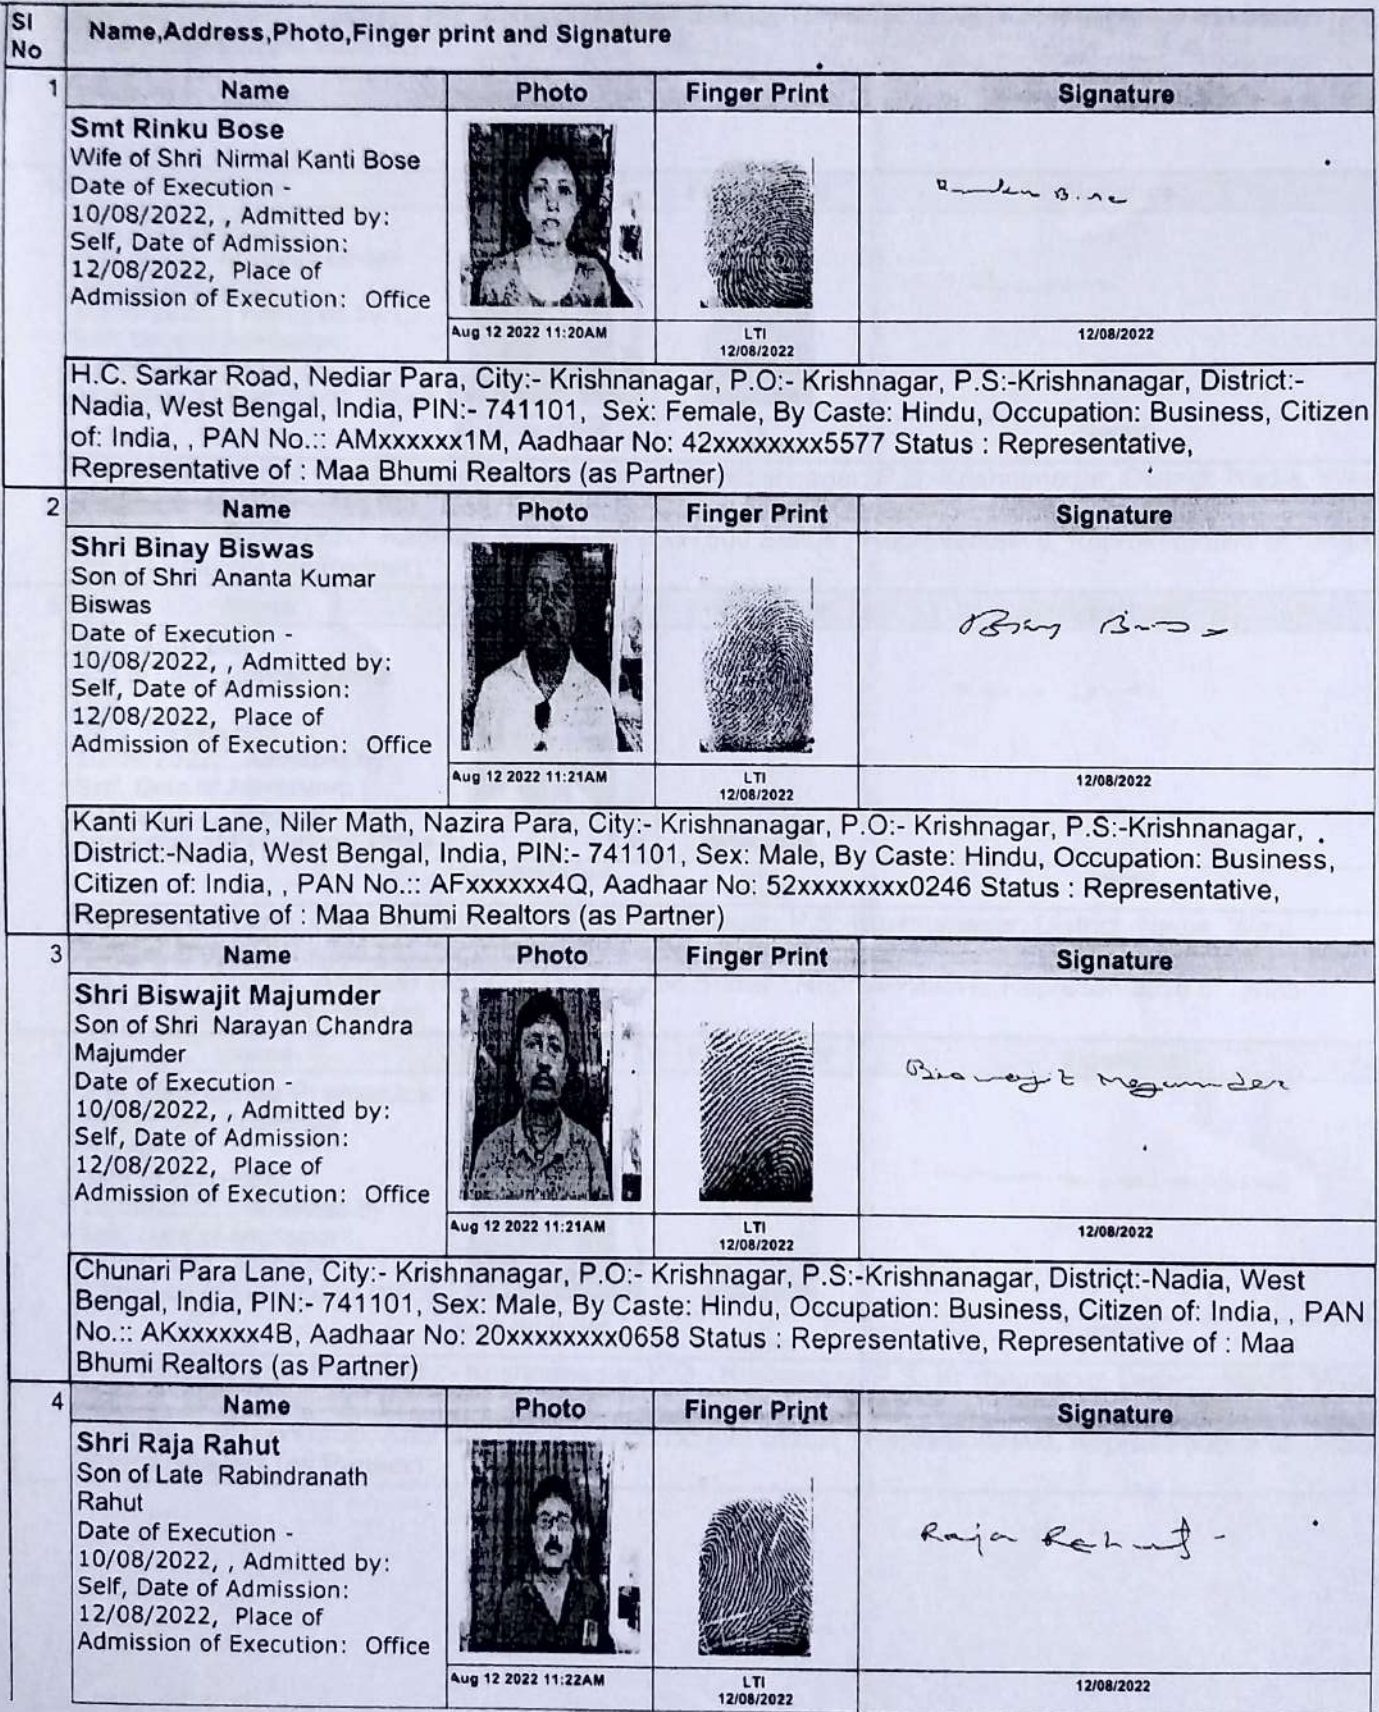 Sl
No
Name,Address,Photo,Finger print and Signature
1
Name Photo Finger Print Signature
Smt Rinku Bose
Wife of Shri Nirmal Kanti Bose
Date of Execution -
10/08/2022, , Admitted by:
Self, Date of Admission:
12/08/2022, Place of
Admission of Execution: Office
Aug 12 2022 11:20AM LTI 12/08/2022
12/08/2022
H.C. Sarkar Road, Nediar Para, City:- Krishnanagar, P.O:- Krishnagar, P.S:-Krishnanagar, District:-
Nadia, West Bengal, India, PIN:- 741101, Sex: Female, By Caste: Hindu, Occupation: Business, Citizen
of: India, , PAN No.:: AMxxxxxx1M, Aadhaar No: 42xxxxxxxx5577 Status : Representative,
Representative of : Maa Bhumi Realtors (as Partner)
2
Name Photo Finger Print Signature
Shri Binay Biswas
Son of Shri Ananta Kumar
Biswas
Date of Execution -
10/08/2022, , Admitted by:
Self, Date of Admission:
12/08/2022, Place of
Admission of Execution: Office
Aug 12 2022 11:21AM LTI 12/08/2022
12/08/2022
Kanti Kuri Lane, Niler Math, Nazira Para, City:- Krishnanagar, P.O:- Krishnagar, P.S:-Krishnanagar,
District:-Nadia, West Bengal, India, PIN:- 741101, Sex: Male, By Caste: Hindu, Occupation: Business,
Citizen of: India, , PAN No.:: AFxxxxxx4Q, Aadhaar No: 52xxxxxxxx0246 Status : Representative,
Representative of : Maa Bhumi Realtors (as Partner)
3
Name Photo Finger Print Signature
Shri Biswajit Majumder
Son of Shri Narayan Chandra
Majumder
Date of Execution -
10/08/2022, , Admitted by:
Self, Date of Admission:
12/08/2022, Place of
Admission of Execution: Office
Biswajit Majumder
Aug 12 2022 11:21AM LTI 12/08/2022
12/08/2022
Chunari Para Lane, City:- Krishnanagar, P.O:- Krishnagar, P.S:-Krishnanagar, District:-Nadia, West
Bengal, India, PIN:- 741101, Sex: Male, By Caste: Hindu, Occupation: Business, Citizen of: India, , PAN
No.:: AKxxxxxx4B, Aadhaar No: 20xxxxxxxx0658 Status : Representative, Representative of : Maa
Bhumi Realtors (as Partner)
4
Name Photo Finger Print Signature
Shri Raja Rahut
Son of Late Rabindranath
Rahut
Date of Execution -
10/08/2022, , Admitted by:
Self, Date of Admission:
12/08/2022, Place of
Admission of Execution: Office
Raja Rahut
Aug 12 2022 11:22AM LTI 12/08/2022
12/08/2022